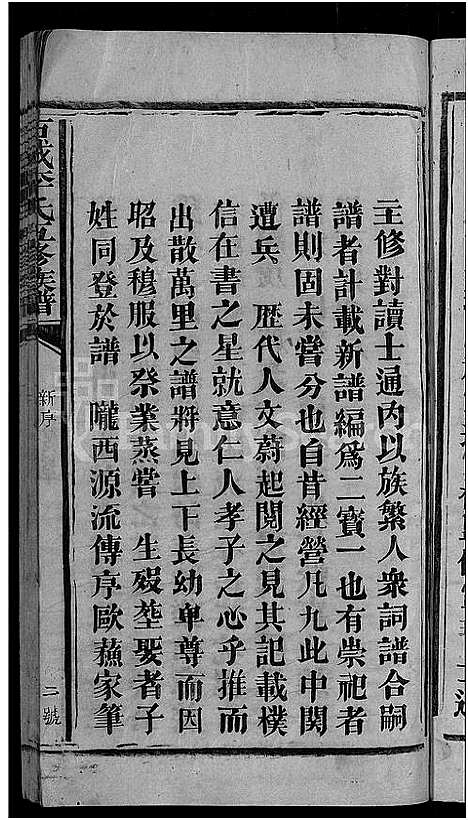 主修對讀士通內以族繁人衆詞譜合嗣
譜者計載新譜編爲二寳一也有崇祀者
譜則固未嘗分也自昔經營凡九此中関
遭兵　歴代人文蔚起閱之見其記載樸
信在書之星就意仁人孝子之心乎推而
出散萬里之譜將見上下長幼卑尊而因
昭及穆服以祭業蒸嘗　生歿塟娶者子
姓同登於譜　隴西源流傳序歐蘓家筆
石城李氏修族譜
新序
二號